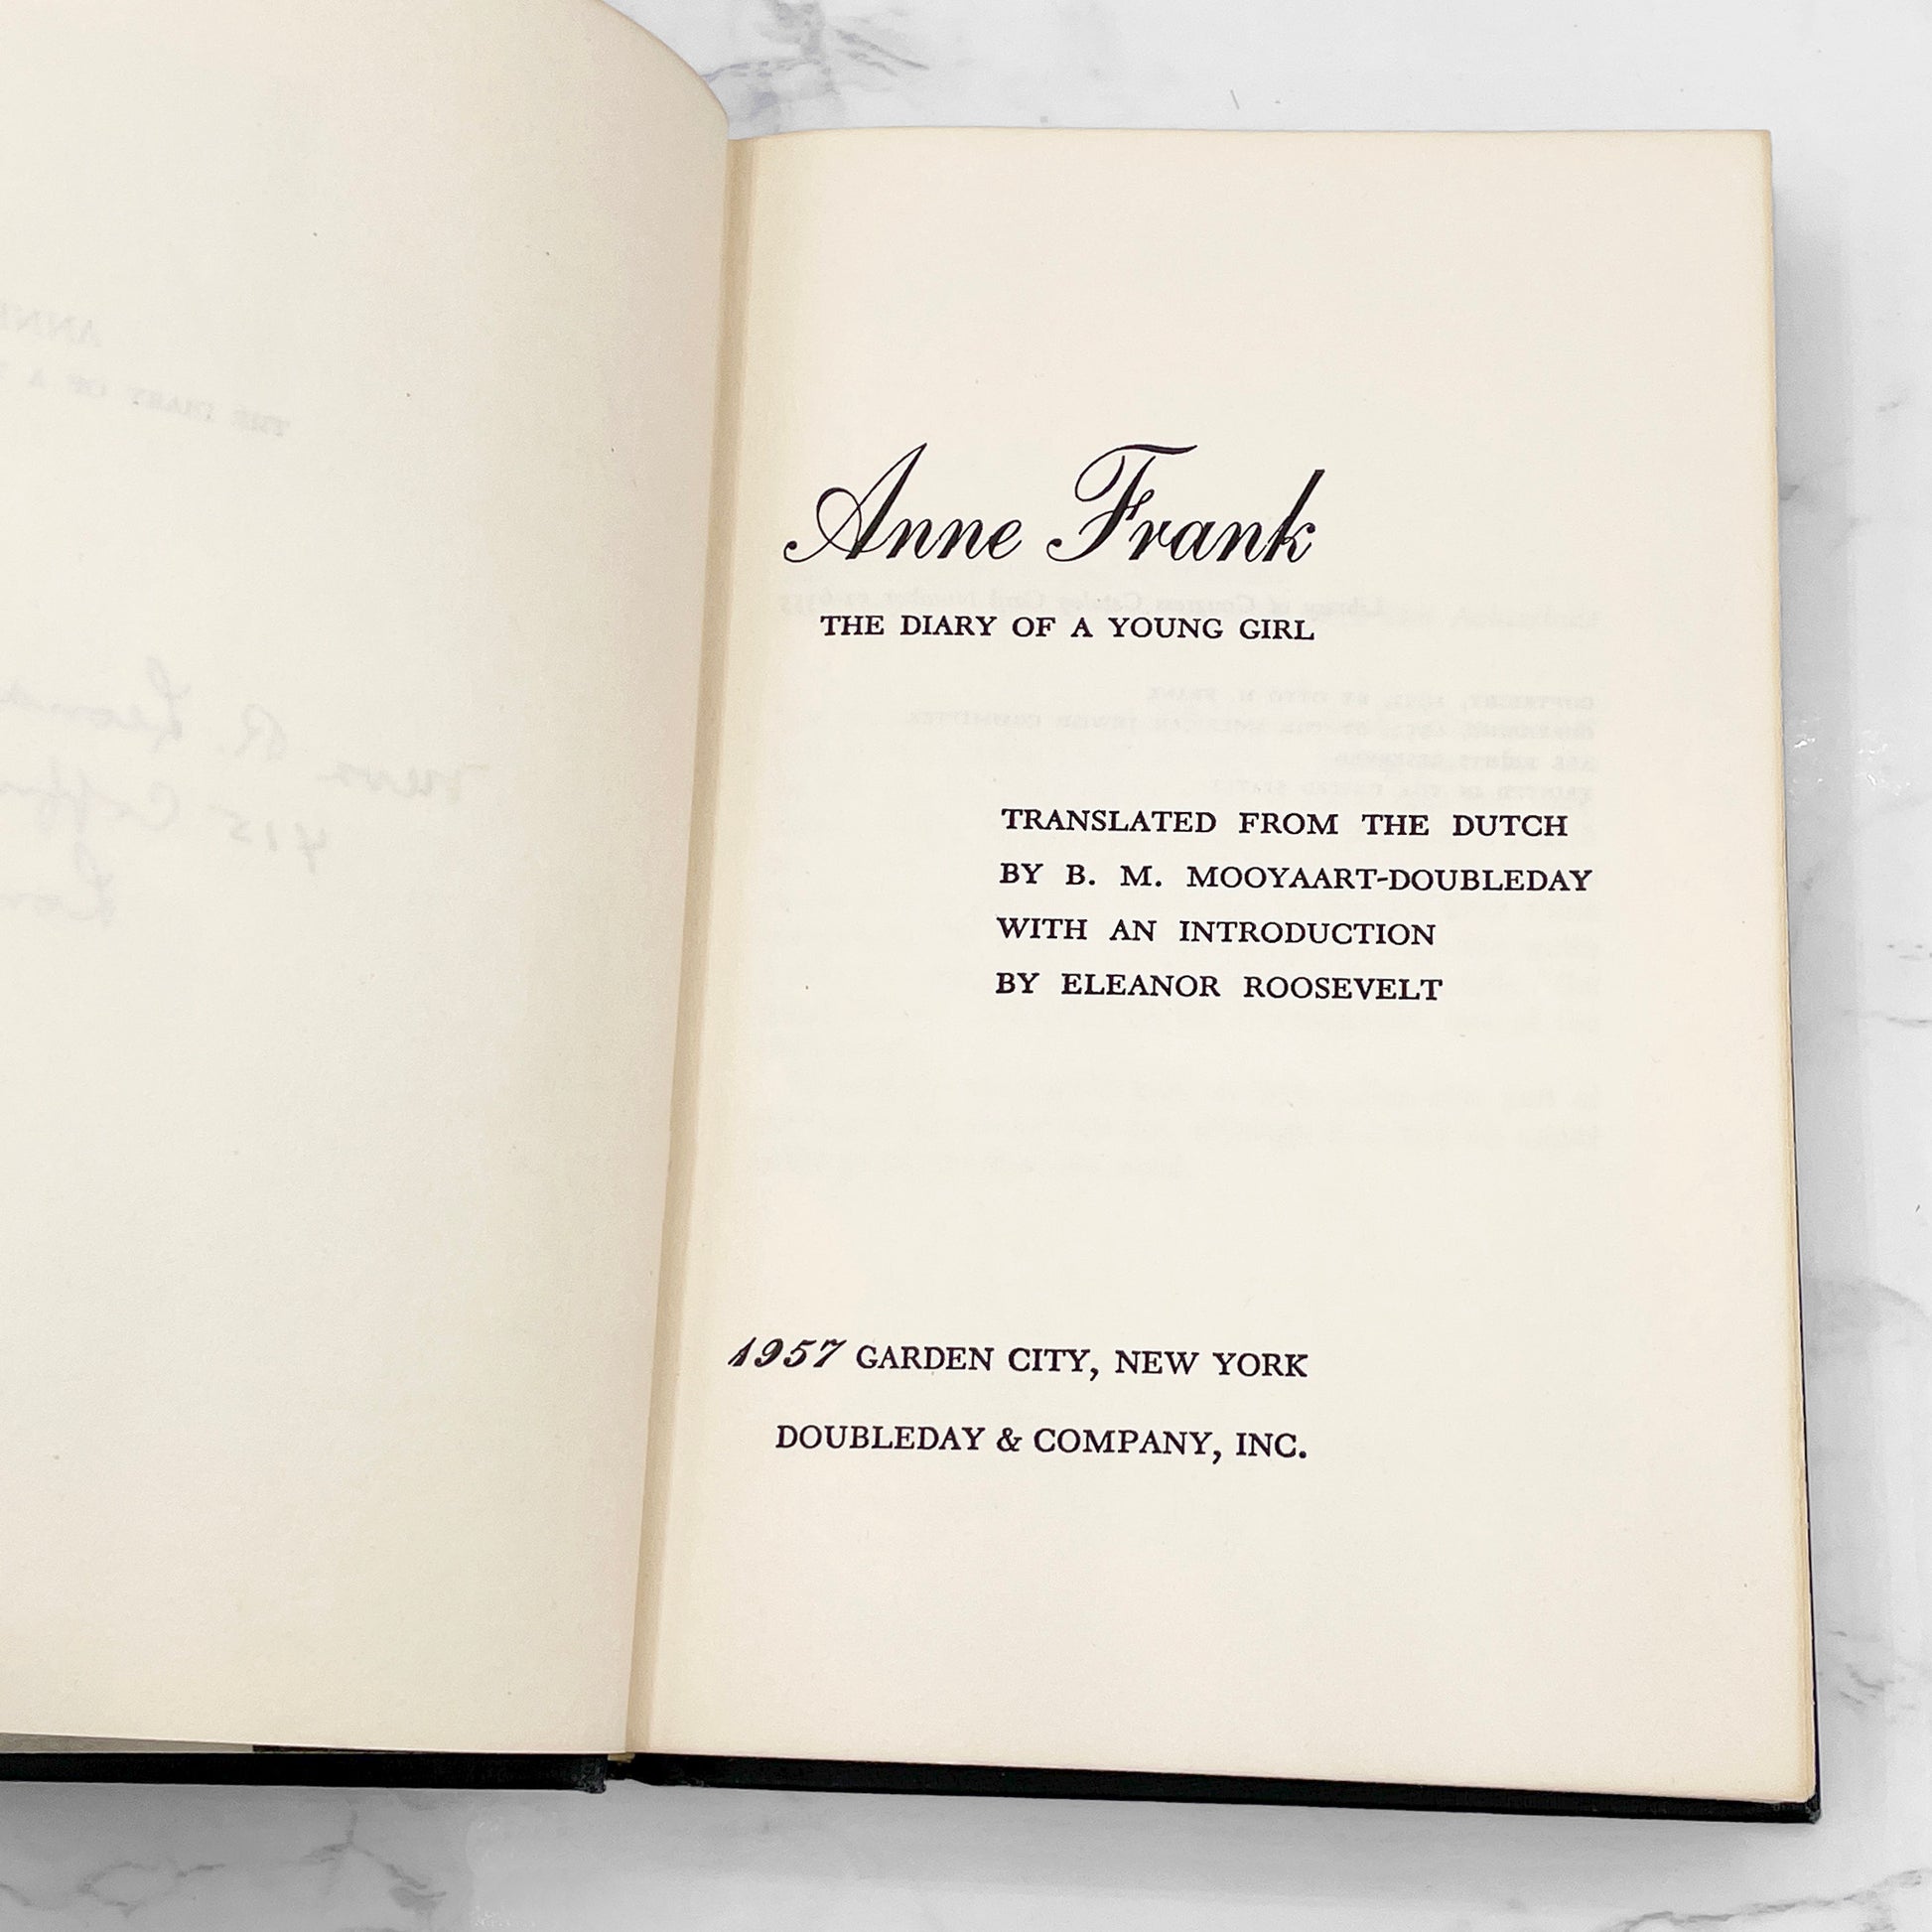 Anne Frank
THE DIARY OF A YOUNG GIRL
TRANSLATED FROM THE DUTCH
BY B. M. MOOYAART-DOUBLEDAY
WITH AN INTRODUCTION
BY ELEANOR ROOSEVELT
1957 GARDEN CITY, NEW YORK
DOUBLEDAY & COMPANY, INC.